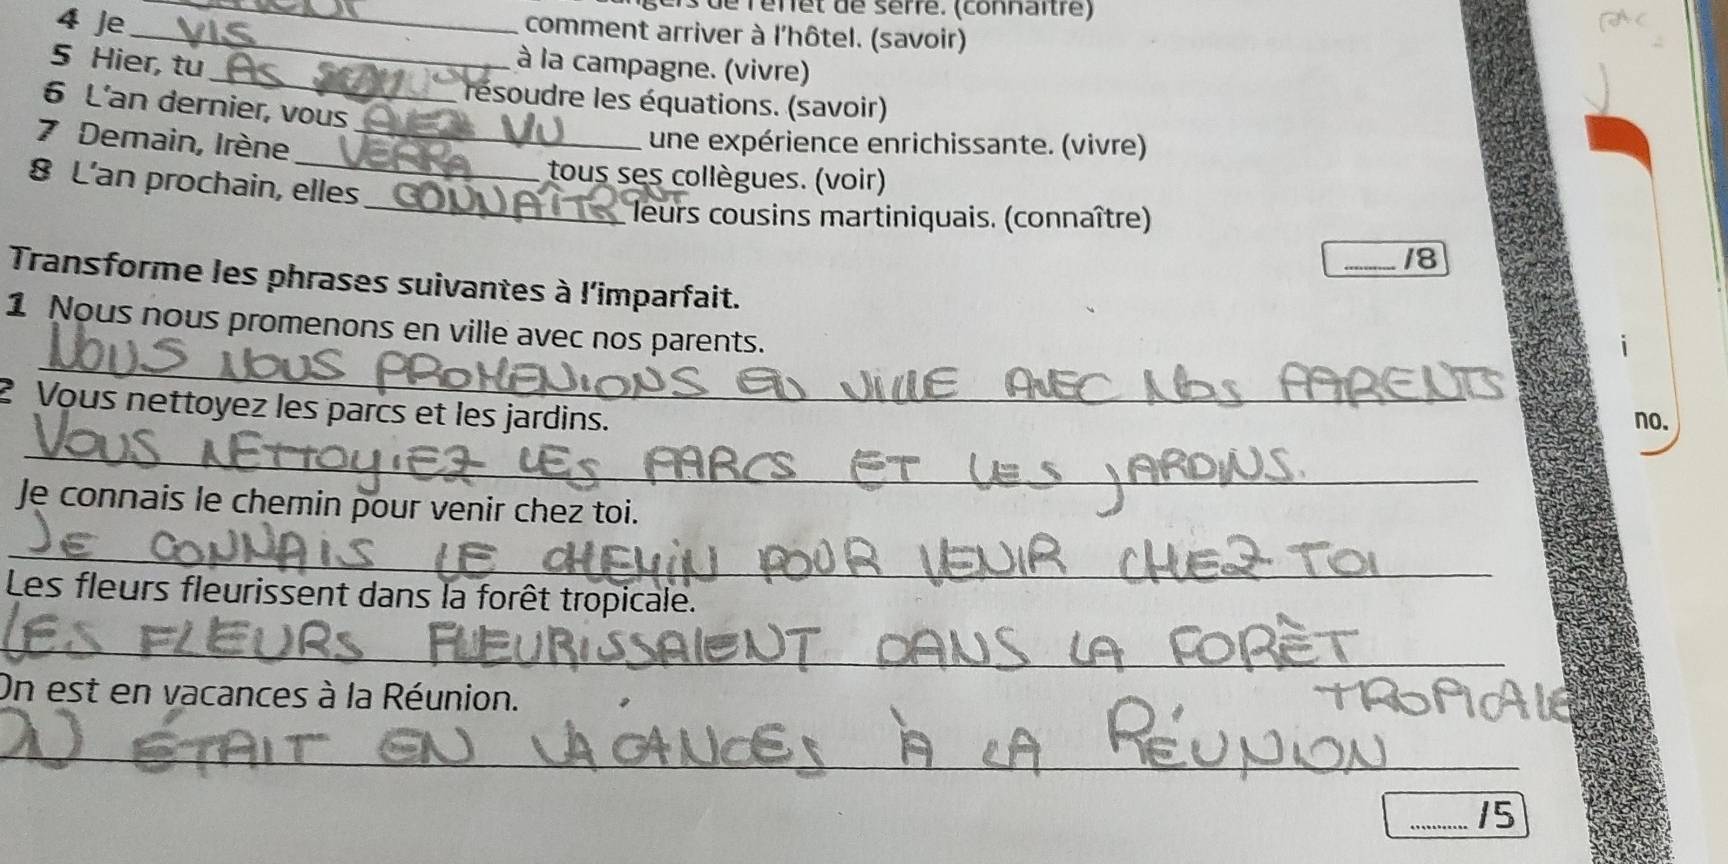 de serre. (connaître)
4 Je VIS comment arriver à l'hôtel. (savoir)
5 Hier, tu AS à la campagne. (vivre)
6 L'an dernier, vous AVEZ VU résoudre les équations. (savoir)
7 Demain, Irène VERRA une expérience enrichissante. (vivre)
8 L'an prochain, elles CONNAÎTRONT tous ses collègues. (voir)
leurs cousins martiniquais. (connaître)
/8
Transforme les phrases suivantes à l'imparfait.
1 Nous nous promenons en ville avec nos parents.
NOUS NOUS PROMENIONS EN VILLE AVEC NOS PARENTS
2 Vous nettoyez les parcs et les jardins.
VOUS NETTOYIEZ LES PARCS ET LES JARDINS.
Je connais le chemin pour venir chez toi.
JE CONNAIS LE CHEMIN POUR VENIR CHEZ TOI
Les fleurs fleurissent dans la forêt tropicale.
LES FLEURS FLEURISSAIENT DANS LA FORÊT
TROPICALE
On est en vacances à la Réunion.
ON ÉTAIT EN VACANCES À LA RÉUNION
/5
i
no.